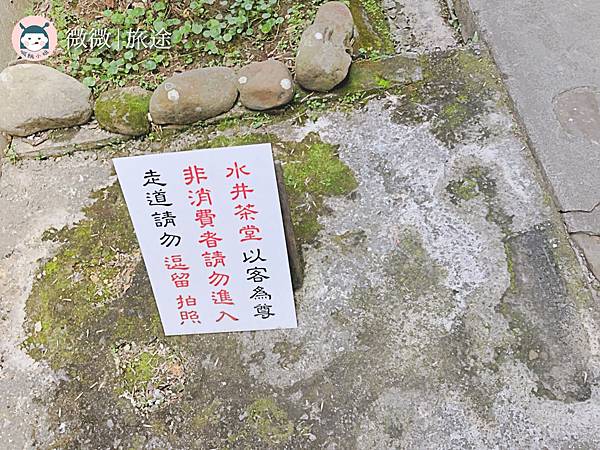 微微|旅途
水井茶堂以客為尊
非消費者請勿進入
走道請勿逗留拍照